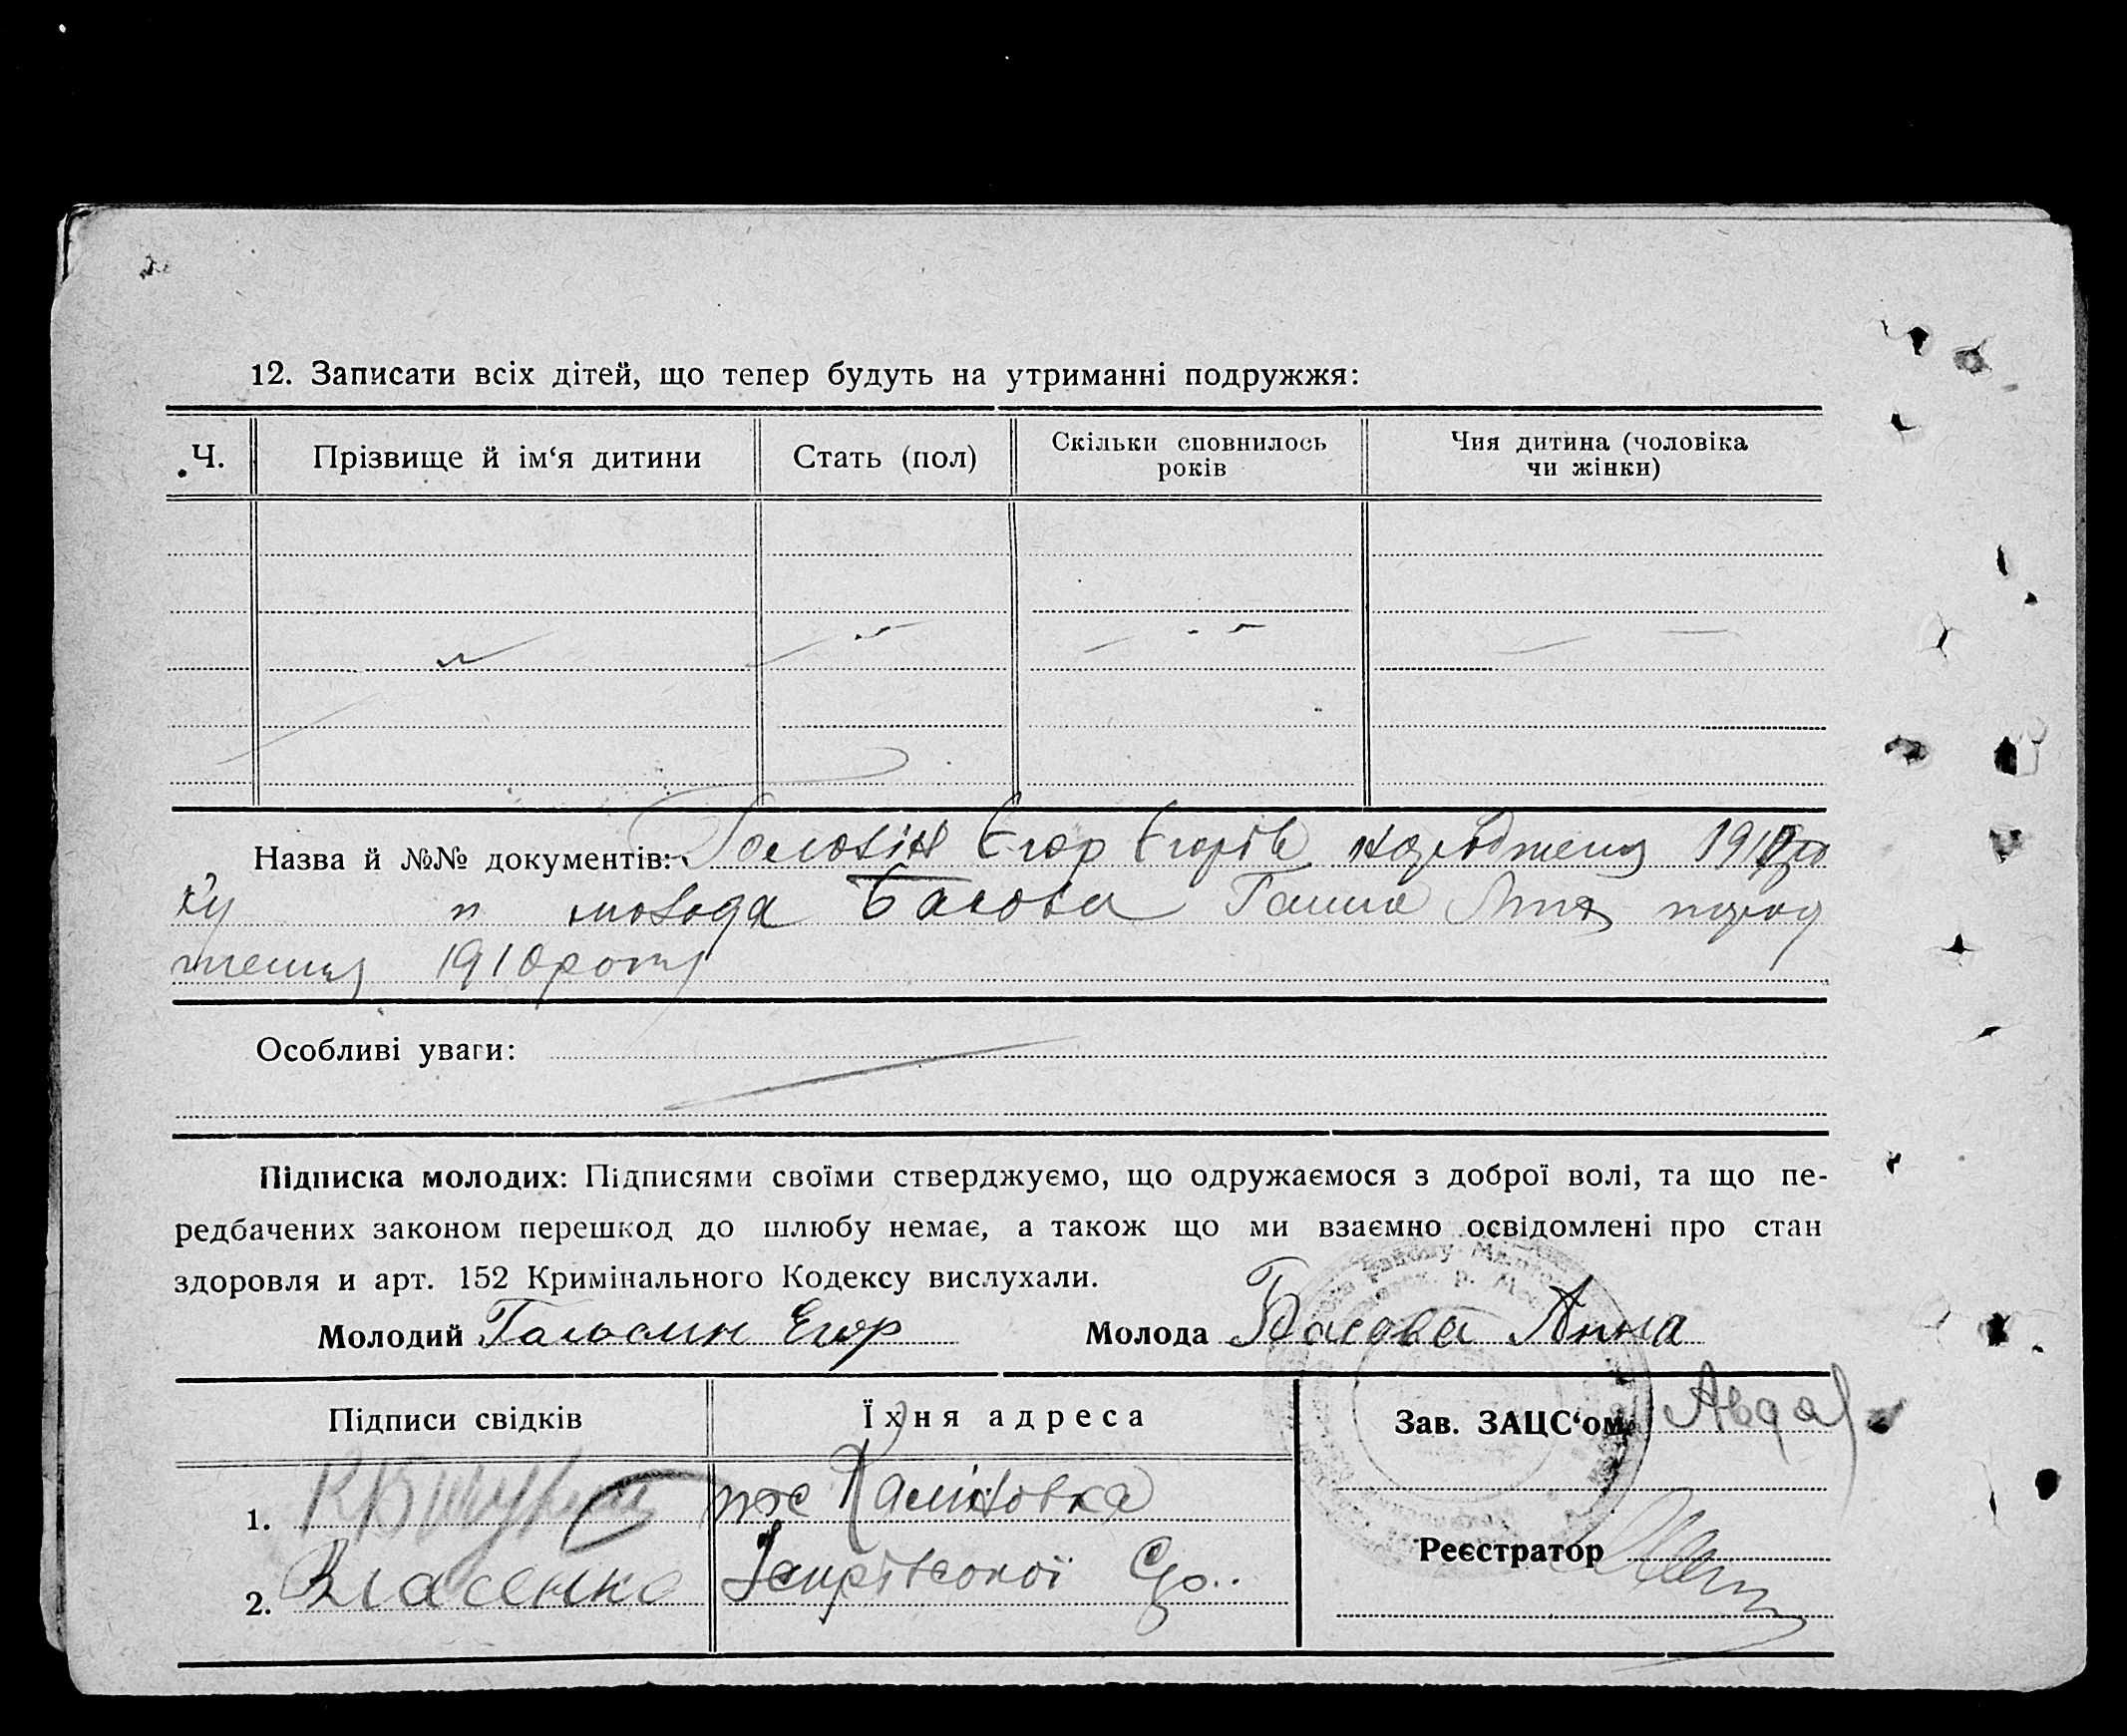 12. Записати всіх дітей, що тепер будуть на утриманні подружжя:
Ч. Прізвище й ім‘я дитини Стать (пол) Скільки сповнилось років Чия дитина (чоловіка чи жінки)
Назва й №№ документів: Головін Єгор Єгорів народження 1910 ро
ку и молода Басова Ганна народ
ження 1910 року
Особливі уваги:
Підписка молодих: Підписями своїми стверджуємо, що одружаємося з доброї волі, та що пе-
редбачених законом перешкод до шлюбу немає, а також що ми взаємно освідомлені про стан
здоровля и арт. 152 Кримінального Кодексу вислухали.
Молодий Головин Егор Молода Басова Анна
Підписи свідків Їхня адреса Зав. ЗАЦС‘ом
1. Каліновка
2. Власенко Реєстратор